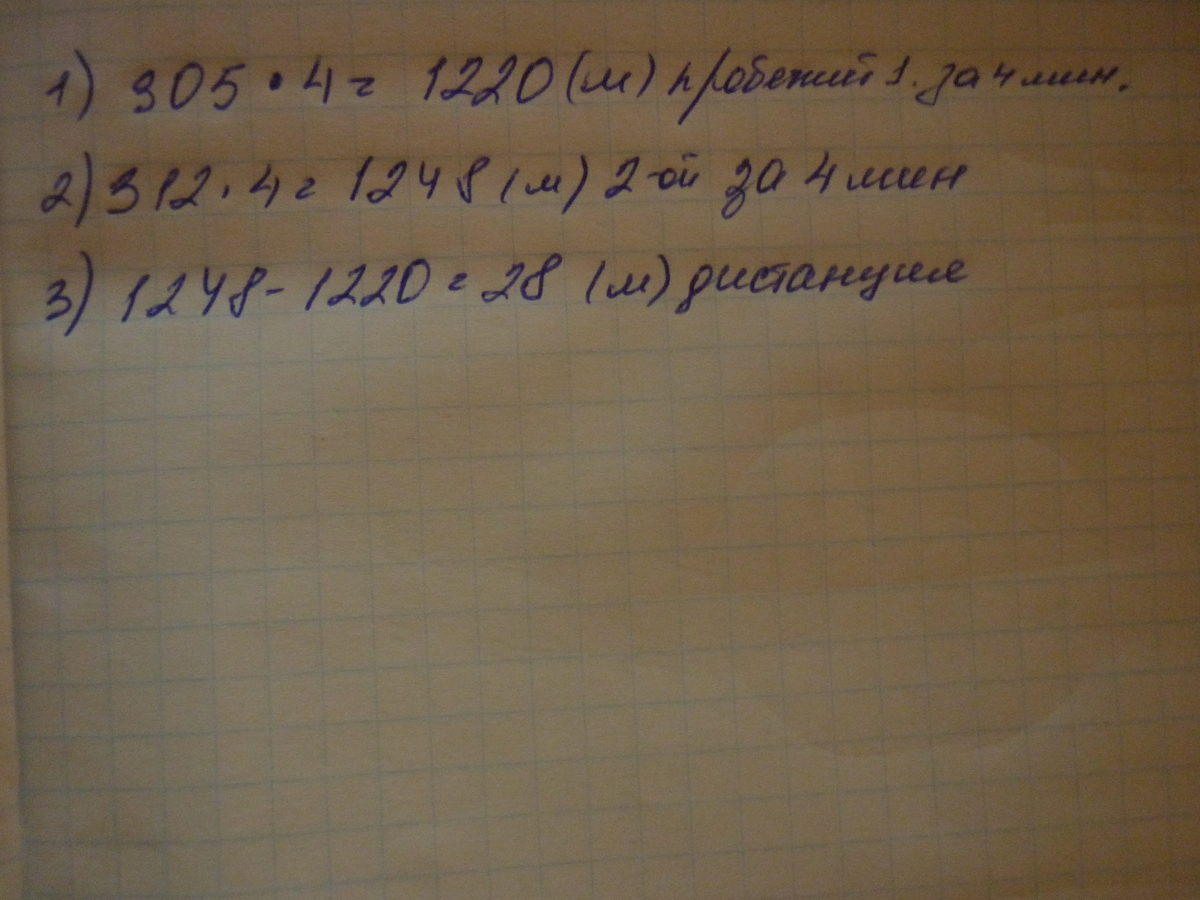 1) 305 • 4 = 1220 (м) пробежит 1. за 4 мин.
2) 312 • 4 = 1248 (м) 2-ой за 4 мин
3) 1248 - 1220 = 28 (м) дистанция